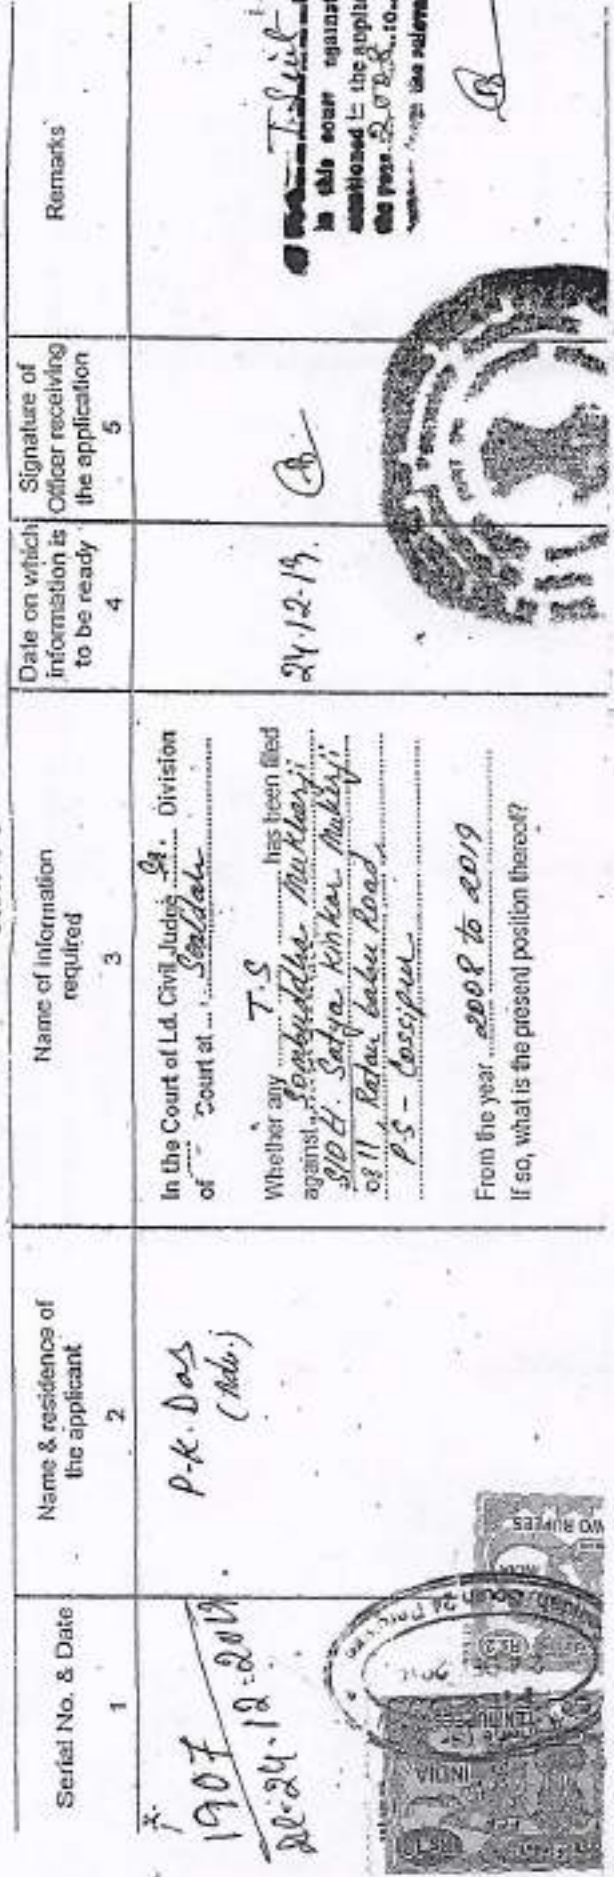 Serial No. & Date
1
Name & residence of
the applicant
2
Name of information
required
3
Date on which
information is
to be ready
4
Signature of
Officer receiving
the application
5
Remarks
1907
24.12.2019
P.K. Das
(Adv.)
In the Court of Ld. Civil Judge Sr. Division
of Court at Sealdah
Whether any T.S has been filed
against Sambuddha Mukharji
S/O Lt. Satya Kinkar Mukerji
of 11, Ratan babu Road
PS - Cossipur
From the year 2008 to 2019
If so, what is the present position thereof?
24.12.19.
T. Suit
in this court against
mentioned in the applic
the year 2008 to
INDIA
TEN RUPEES
Rs.2
INDIA
WO RUPEES